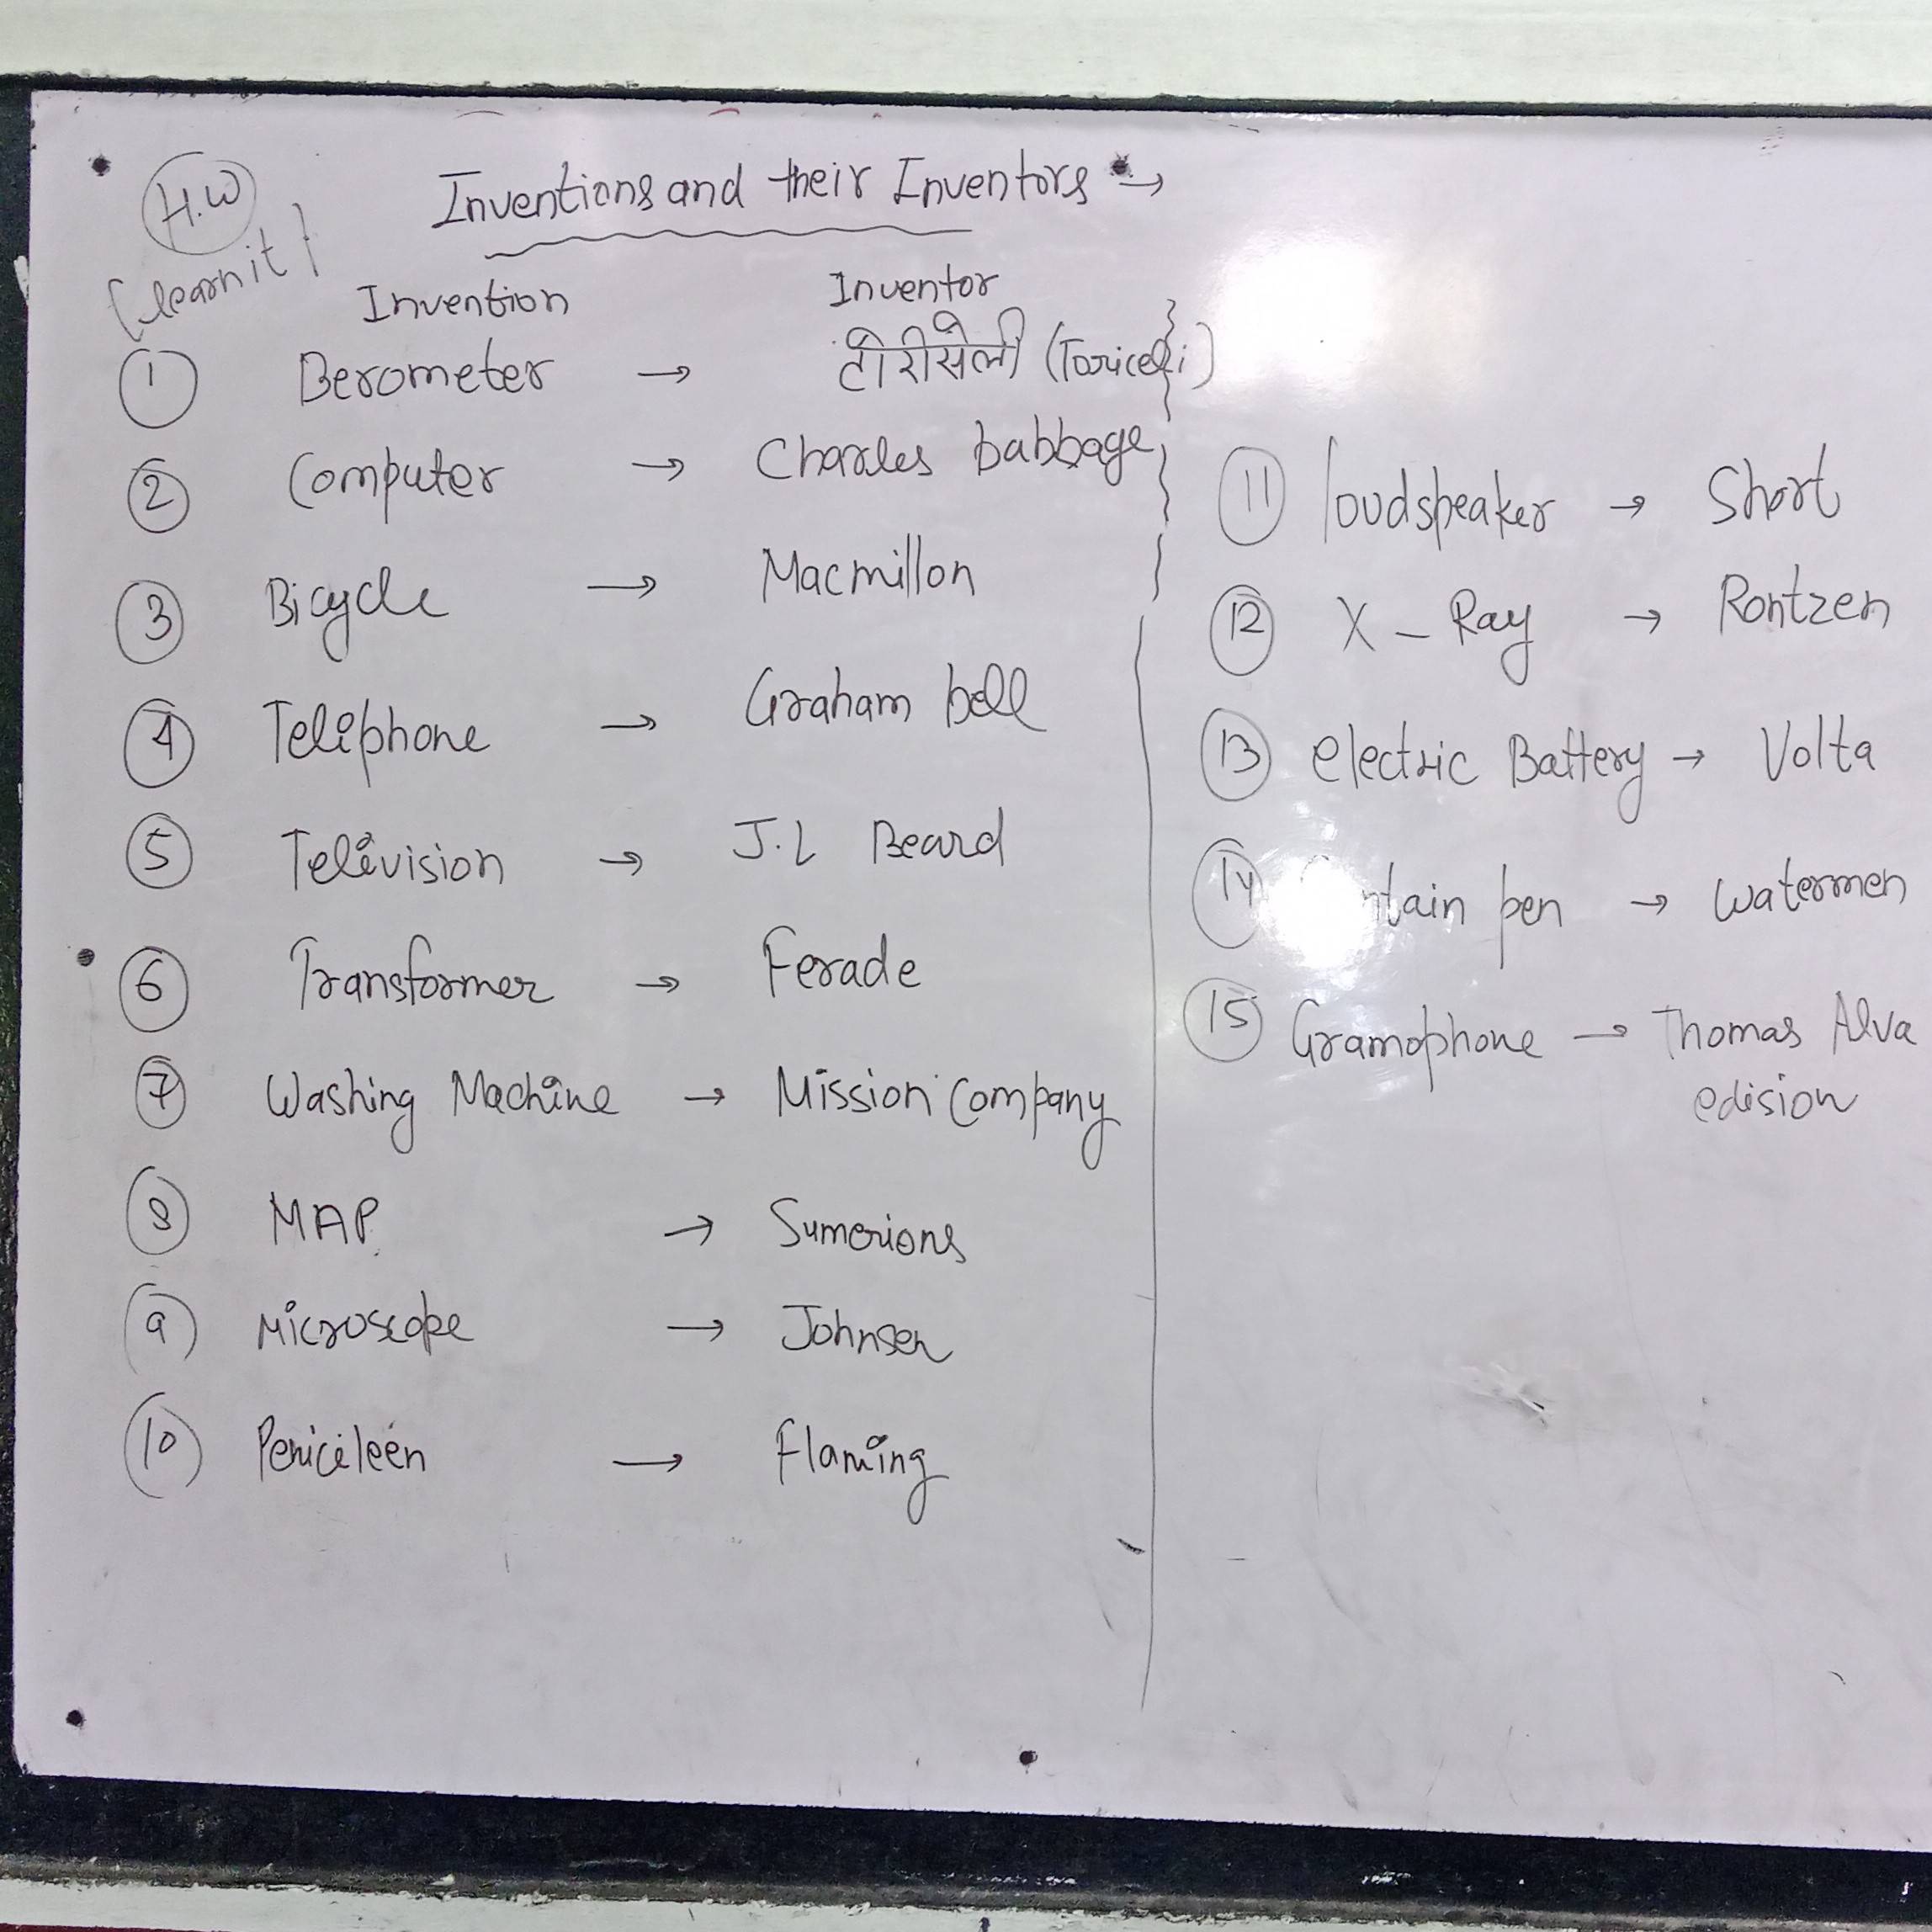 H.W
[learn it}
Inventions and their Inventors →
Invention Inventor
1 Berometer → टोरीसेली (Toricelli)
2 Computer → Charles babbage
3 Bicycle → Macmillon
4 Telephone → Graham bell
5 Television → J.L Beard
6 Transformer → Ferade
7 Washing Machine → Mission Company
8 MAP → Sumerions
9 Microscope → Johnsen
10 Peniceleen → Flaming
11 loudspeaker → Short
12 X – Ray → Rontzen
13 electric Battery → Volta
14 pen → Watermen
15 Gramophone → Thomas Alva
edision